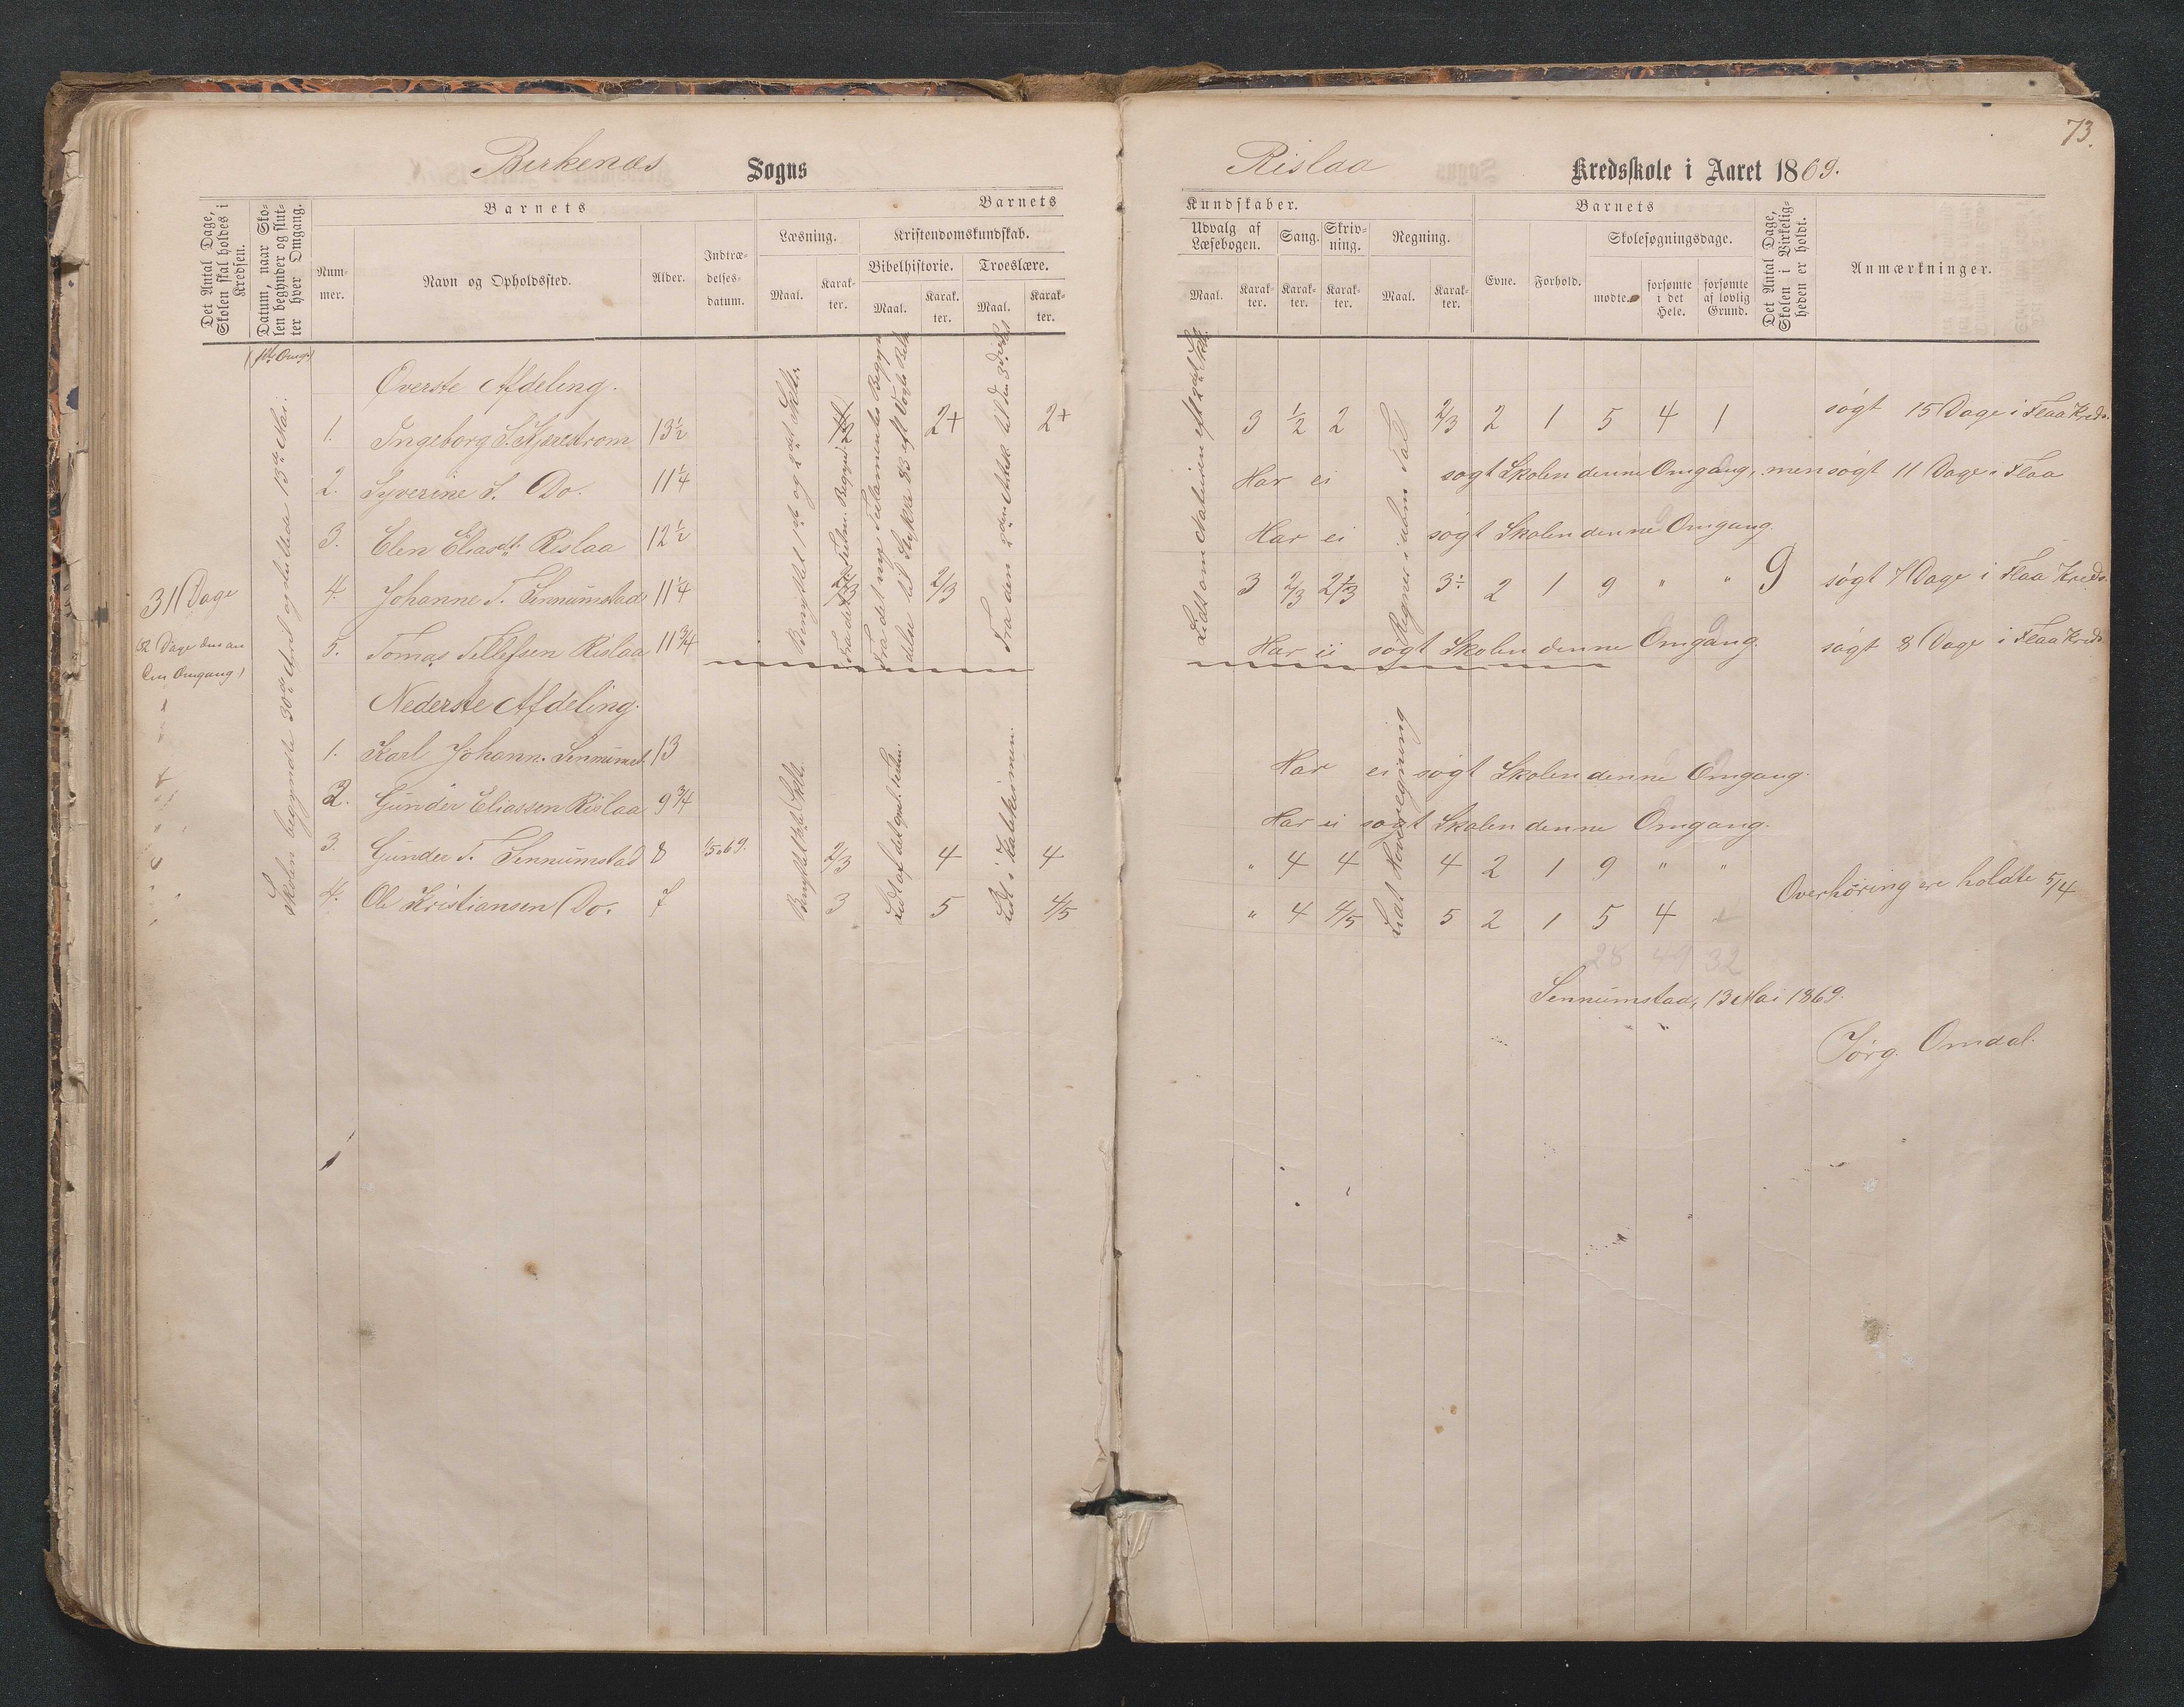 73.
Birkenæs Sogns
Rislaa Kredsskole i Aaret 1869.
Det Antal Dage, Skolen skal holdes i Kredsen.
Datum, naar Skolen begynder og slutter hver Omgang.
Barnets
Nummer.
Navn og Opholdssted.
Alder.
Indtrædelses-datum.
Barnets
Læsning.
Maal.
Karakter.
Kristendomskundskab.
Bibelhistorie.
Maal.
Karakter.
Troeslære.
Maal.
Karakter.
Kundskaber.
Udvalg af Læsebogen.
Maal.
Karakter.
Sang.
Karakter.
Skrivning.
Karakter.
Regning.
Maal.
Karakter.
Barnets
Evne.
Forhold.
Skolesøgningsdage.
mødte.
forsømte i det Hele.
forsømte af lovlig Grund.
Det Antal Dage, Skolen i Virkeligheden er holdt.
Anmærkninger.
31 Dage
Skolen begyndte 30de April og sluttede 13de Mai.
Øverste Afdeling.
1. Ingeborg S. Kjærestrøm 13½ 2+ 2+ 3 ½ 2 2/3 2 1 5 4 1 søgt 15 Dage i Flaa Kreds.
2. Syverine S. Do. 11¼ Har ei søgt Skolen denne Omgang, men søgt 11 Dage i Flaa
3. Elen Eliasdt. Rislaa 12½ Har ei søgt Skolen denne Omgang.
4. Johanne T. Sennumstad 11¼ 2/3 3 2/3 2/3 3 2 1 9 " " 9 søgt 7 Dage i Flaa Kreds.
5. Tomas Tellefsen Rislaa 11¾ Har ei søgt Skolen denne Omgang. søgt 8 Dage i Flaa Kreds
Nederste Afdeling.
1. Karl Johann. Sennumst. 13 Har ei søgt Skolen denne Omgang.
2. Gunder Eliassen Rislaa 9¾ Har ei søgt Skolen denne Omgang.
3. Gunder T. Sennumstad 8 1/5 69. 2/3 4 4 " 4 4 4 2 1 9 " "
4. Ole Kristiansen Do. 7 3 5 4/5 " 4 4/5 5 2 1 5 4
Benyttet 1ste og 2det Skrift
Fra den 2den Artik til den 3die
Regner i ubm Tal
Lidt i Katekismen.
Lidt Hovedregning
Overhøring ere holdte 5/4
28 49 32
Sennumstad, 13 Mai 1869.
Jørg. Omdal.